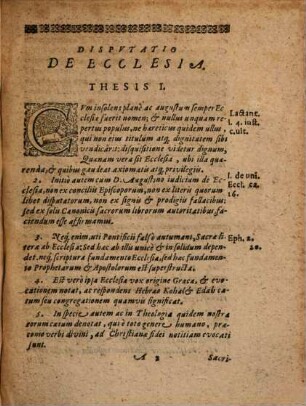 DISPVTATIO
DE ECCLESIA.
THESIS I.
CVm insolens planè ac augustum semper Ecclesiæ
fuerit nomen; & nullus unquam repertus
populus, ne hæreticus quidem ullus
qui non ejus titulum atq; dignitatem sibi
vendicârit: disquisitione videtur dignum,
Quænam vera sit Ecclesia, ubi illa quærenda,
& quibus gaudeat axiomatis atq; prævilegiis.
Lactanc.
l. 4. inst.
c. ult.
2. Iuxta autem cum D. Augustino iudicium de Ecclesia,
non ex conciliis Episcoporum, non ex literis quorumlibet
disputatorum, non ex signis & prodigiis fallacibus;
sed ex solis Canonicis sacrorum librorum autoritatibus, faciendum
esse affirmamus.
l. de uni.
Eccl. ca.
16.
3. Neq; enim, uti Pontificii falsò autumant, Sacræ literæ
ab Ecclesia: sed hæc ab illis unicè & in solidum dependet.
neq; scriptura fundamento Ecclesiæ, sed hæc fundamento
Prophetarum & Apostolorum est superstructa.
Eph. 2.
20.
4. Est verò ipsa Ecclesiæ vox origine Græca, & evocationem
notat, ac respondens Hebræo Kahal & Edah cætum
seu congregationem quamvis significat.
5. In specie autem ac in Theologia quidem nostra
eorum cætum denotat, qui è toto genere humano, præconio
verbi divini, ad Christianæ fidei notitiam evocati
sunt.
A 2 Sacri-